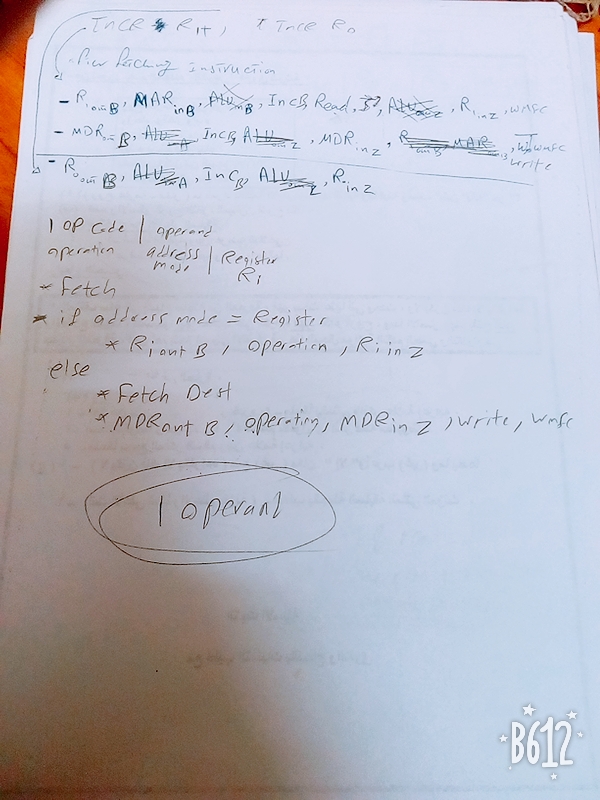 INCR R1+, * Incr R0
instruction
- R1 out B, MAR in B, ALU in B, Inc B, Read, ALU out Z, R1 in Z, wmfc
- MDR out B, ALU in A, Inc B, ALU out Z, MDR in Z, R out B MAR in B, wmfc
write
- R0 out B, ALU in A, Inc B, ALU out Z, R in Z
1 OP Code | operand
operation address mode | Register Ri
* Fetch
* if address mode = Register
* Ri out B, operation, Ri in Z
else
* Fetch Dest
* MDR out B, operating, MDR in Z, write, wmfc
1 operand
B612